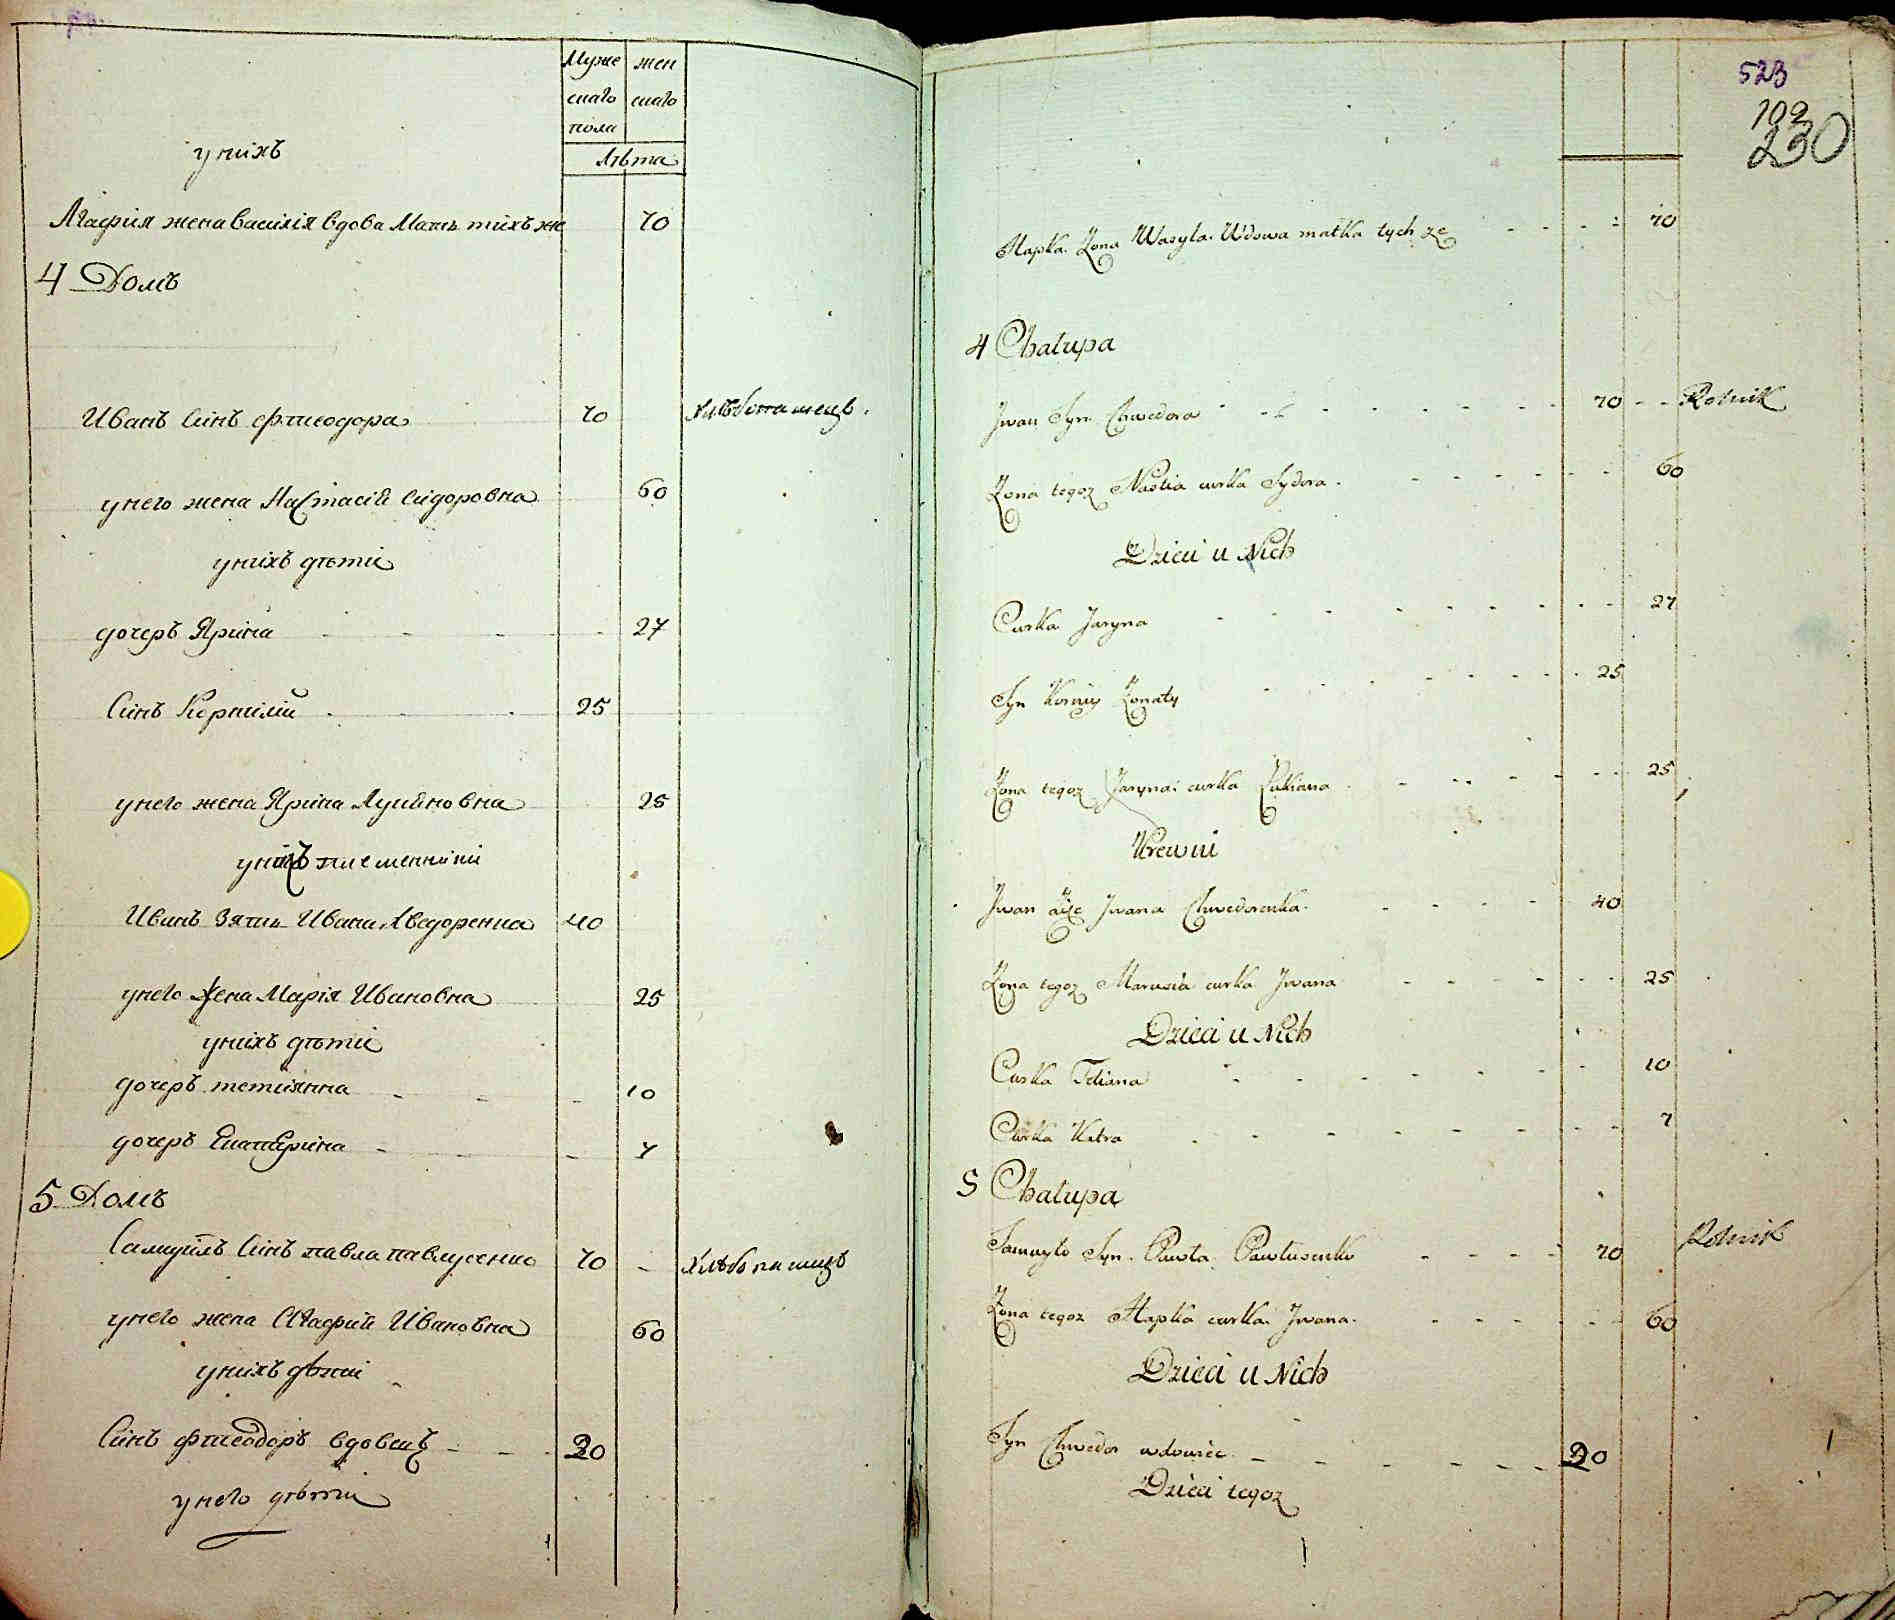 Муже жен
скаго скаго
пола
Лѣта
у нихъ
Агафия жена василия вдова Мать тихъ же 70
4 Домъ
Иванъ Синъ Фтиеодора 70 Хлѣбопашецъ.
у него жена Настасия Сидоровна 60
у нихъ дѣти
дочеръ Ярина 27
Синъ Корнилий 25
у него жена Ярина Лукияновна 25
у нихъ племенники
Иванъ Зять Ивана Хведоренка 40
у него жена Мария Ивановна 25
у нихъ дѣти
дочеръ тетиянна 10
дочеръ Екатерина 7
5 Домъ
Самуйлъ Синъ павла павлусенко 70 Хлѣбопашецъ
у него жена Агафия Ивановна 60
у нихъ дѣти
Синъ Фтиеодоръ вдовецъ 30
у него дѣти
523
102
230
Hapka Żona Wasyla Wdowa matka tych że 70
4 Chałupa
Jwan Syn Chwedora 70 Rolnik
Żona tegoż Nastia curka Sydora 60
Dzieci u Nich
Curka Jaryna 27
Syn Korniy Żonaty 25
Żona tegoż Jaryna curka Łukiana 25
Krewni
Jwan ziẹć Jwana Chwedorenka 40
Żona tegoż Marusia curka Jwana 25
Dzieci u Nich
Curka Tetiana 10
Curka Katra 7
5 Chałupa
Samuyło Syn Pawła Pawłusenko 70 Rolnik
Żona tegoż Hapka curka Jwana 60
Dzieci u Nich
Syn Chwedor wdowiec 30
Dzieci tegoż